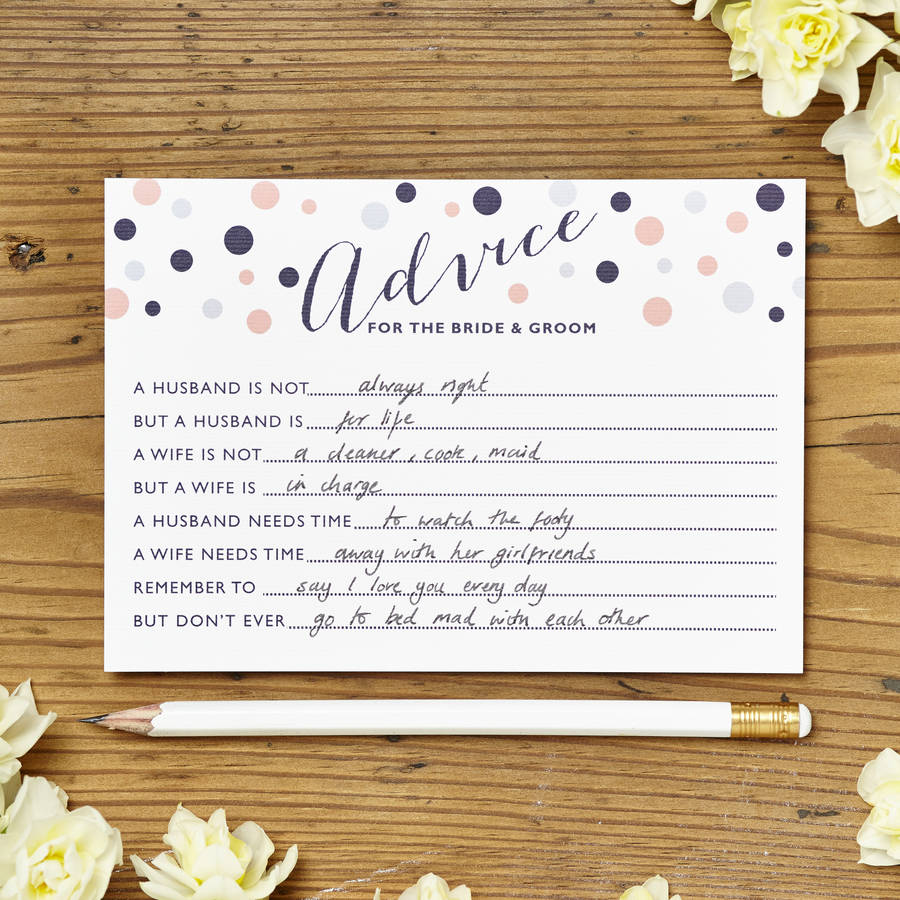 Advice
FOR THE BRIDE & GROOM
A HUSBAND IS NOT always right
BUT A HUSBAND IS for life
A WIFE IS NOT a cleaner, cook, maid
BUT A WIFE IS in charge
A HUSBAND NEEDS TIME to watch the footy
A WIFE NEEDS TIME away with her girlfriends
REMEMBER TO say I love you every day
BUT DON'T EVER go to bed mad with each other